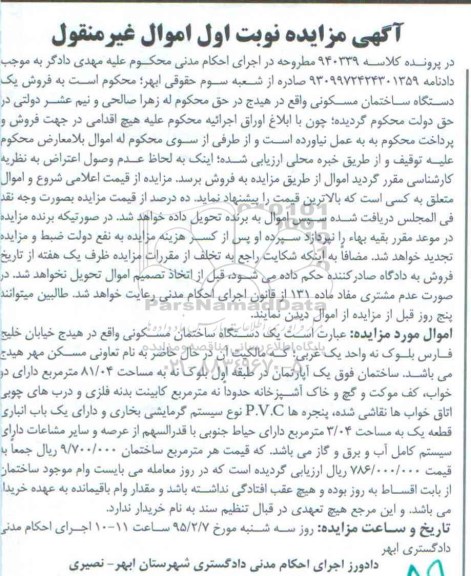 آگهی مزایده نوبت اول اموال غیرمنقول
در پرونده کلاسه ۹۴۰۳۳۹ مطروحه در اجرای احکام مدنی محکوم علیه مهدی دادگر به موجب
دادنامه ۹۳۰۹۹۷۲۴۲۴۳۰۱۳۵۹ صادره از شعبه سوم حقوقی ابهر؛ محکوم است به فروش یک
دستگاه ساختمان مسکونی واقع در هیدج در حق محکوم له زهرا صالحی و نیم عشر دولتی در
حق دولت محکوم گردیده؛ چون با ابلاغ اوراق اجرائیه محکوم علیه هیچ اقدامی در جهت فروش و
پرداخت محکوم به به عمل نیاورده است و از طرفی از سوی محکوم له اموال بلامعارض محکوم
علیه توقیف و از طریق خبره محلی ارزیابی شده؛ اینک به لحاظ عدم وصول اعتراض به نظریه
کارشناسی مقرر گردید اموال از طریق مزایده به فروش برسد. مزایده از قیمت اعلامی شروع و اموال
متعلق به کسی است که بالاترین قیمت را پیشنهاد نماید. ده درصد از قیمت مزایده بصورت وجه نقد
فی المجلس دریافت شده سپس اموال به برنده تحویل داده خواهد شد. در صورتیکه برنده مزایده
در موعد مقرر بقیه بهاء را نپردازد سپرده او پس از کسر هزینه مزایده به نفع دولت ضبط و مزایده
تجدید خواهد شد. مضافاً به اینکه شکایت راجع به تخلف از مقررات مزایده ظرف یک هفته از تاریخ
فروش به دادگاه صادرکننده حکم داده می شود، قبل از اتخاذ تصمیم اموال تحویل نخواهد شد. در
صورت عدم مشتری مفاد ماده ۱۳۱ از قانون اجرای احکام مدنی رعایت خواهد شد. طالبین میتوانند
پنج روز قبل از مزایده از اموال دیدن نمایند.
اموال مورد مزایده: عبارت است یک دستگاه ساختمان مسکونی واقع در هیدج خیابان خلیج
فارس بلوک نه واحد یک غربی؛ که مالکیت آن در حال حاضر به نام تعاونی مسکن مهر هیدج
می باشد. ساختمان فوق یک آپارتمان در طبقه اول بلوک نه به مساحت ۸۱/۰۴ مترمربع دارای دو
خواب، کف موکت و گچ و خاک آشپزخانه حدودا نه مترمربع کابینت بدنه فلزی و درب های چوبی
اتاق خواب ها نقاشی شده، پنجره ها P.V.C نوع سیستم گرمایشی بخاری و دارای یک باب انباری
قطعه یک به مساحت ۳/۰۴ مترمربع دارای حیاط جنوبی با قدرالسهم از عرصه و سایر مشاعات دارای
سیستم کامل آب و برق و گاز می باشد. که قیمت هر مترمربع ساختمان ۹/۷۰۰/۰۰۰ ریال جمعا به
قیمت ۷۸۶/۰۰۰/۰۰۰ ریال ارزیابی گردیده است که در روز معامله می بایست وام موجود ساختمان
از بابت اقساط به روز بوده و هیچ عقب افتادگی نداشته باشد و مقدار وام باقیمانده به عهده خریدار
می باشد. و این مرجع هیچ تعهدی در قبال تنظیم سند به نام خریدار ندارد.
تاریخ و ساعت مزایده: روز سه شنبه مورخ ۹۵/۲/۷ ساعت ۱۱-۱۰ اجرای احکام مدنی
دادگستری ابهر
دادورز اجرای احکام مدنی دادگستری شهرستان ابهر- نصیری
ParsNamadData